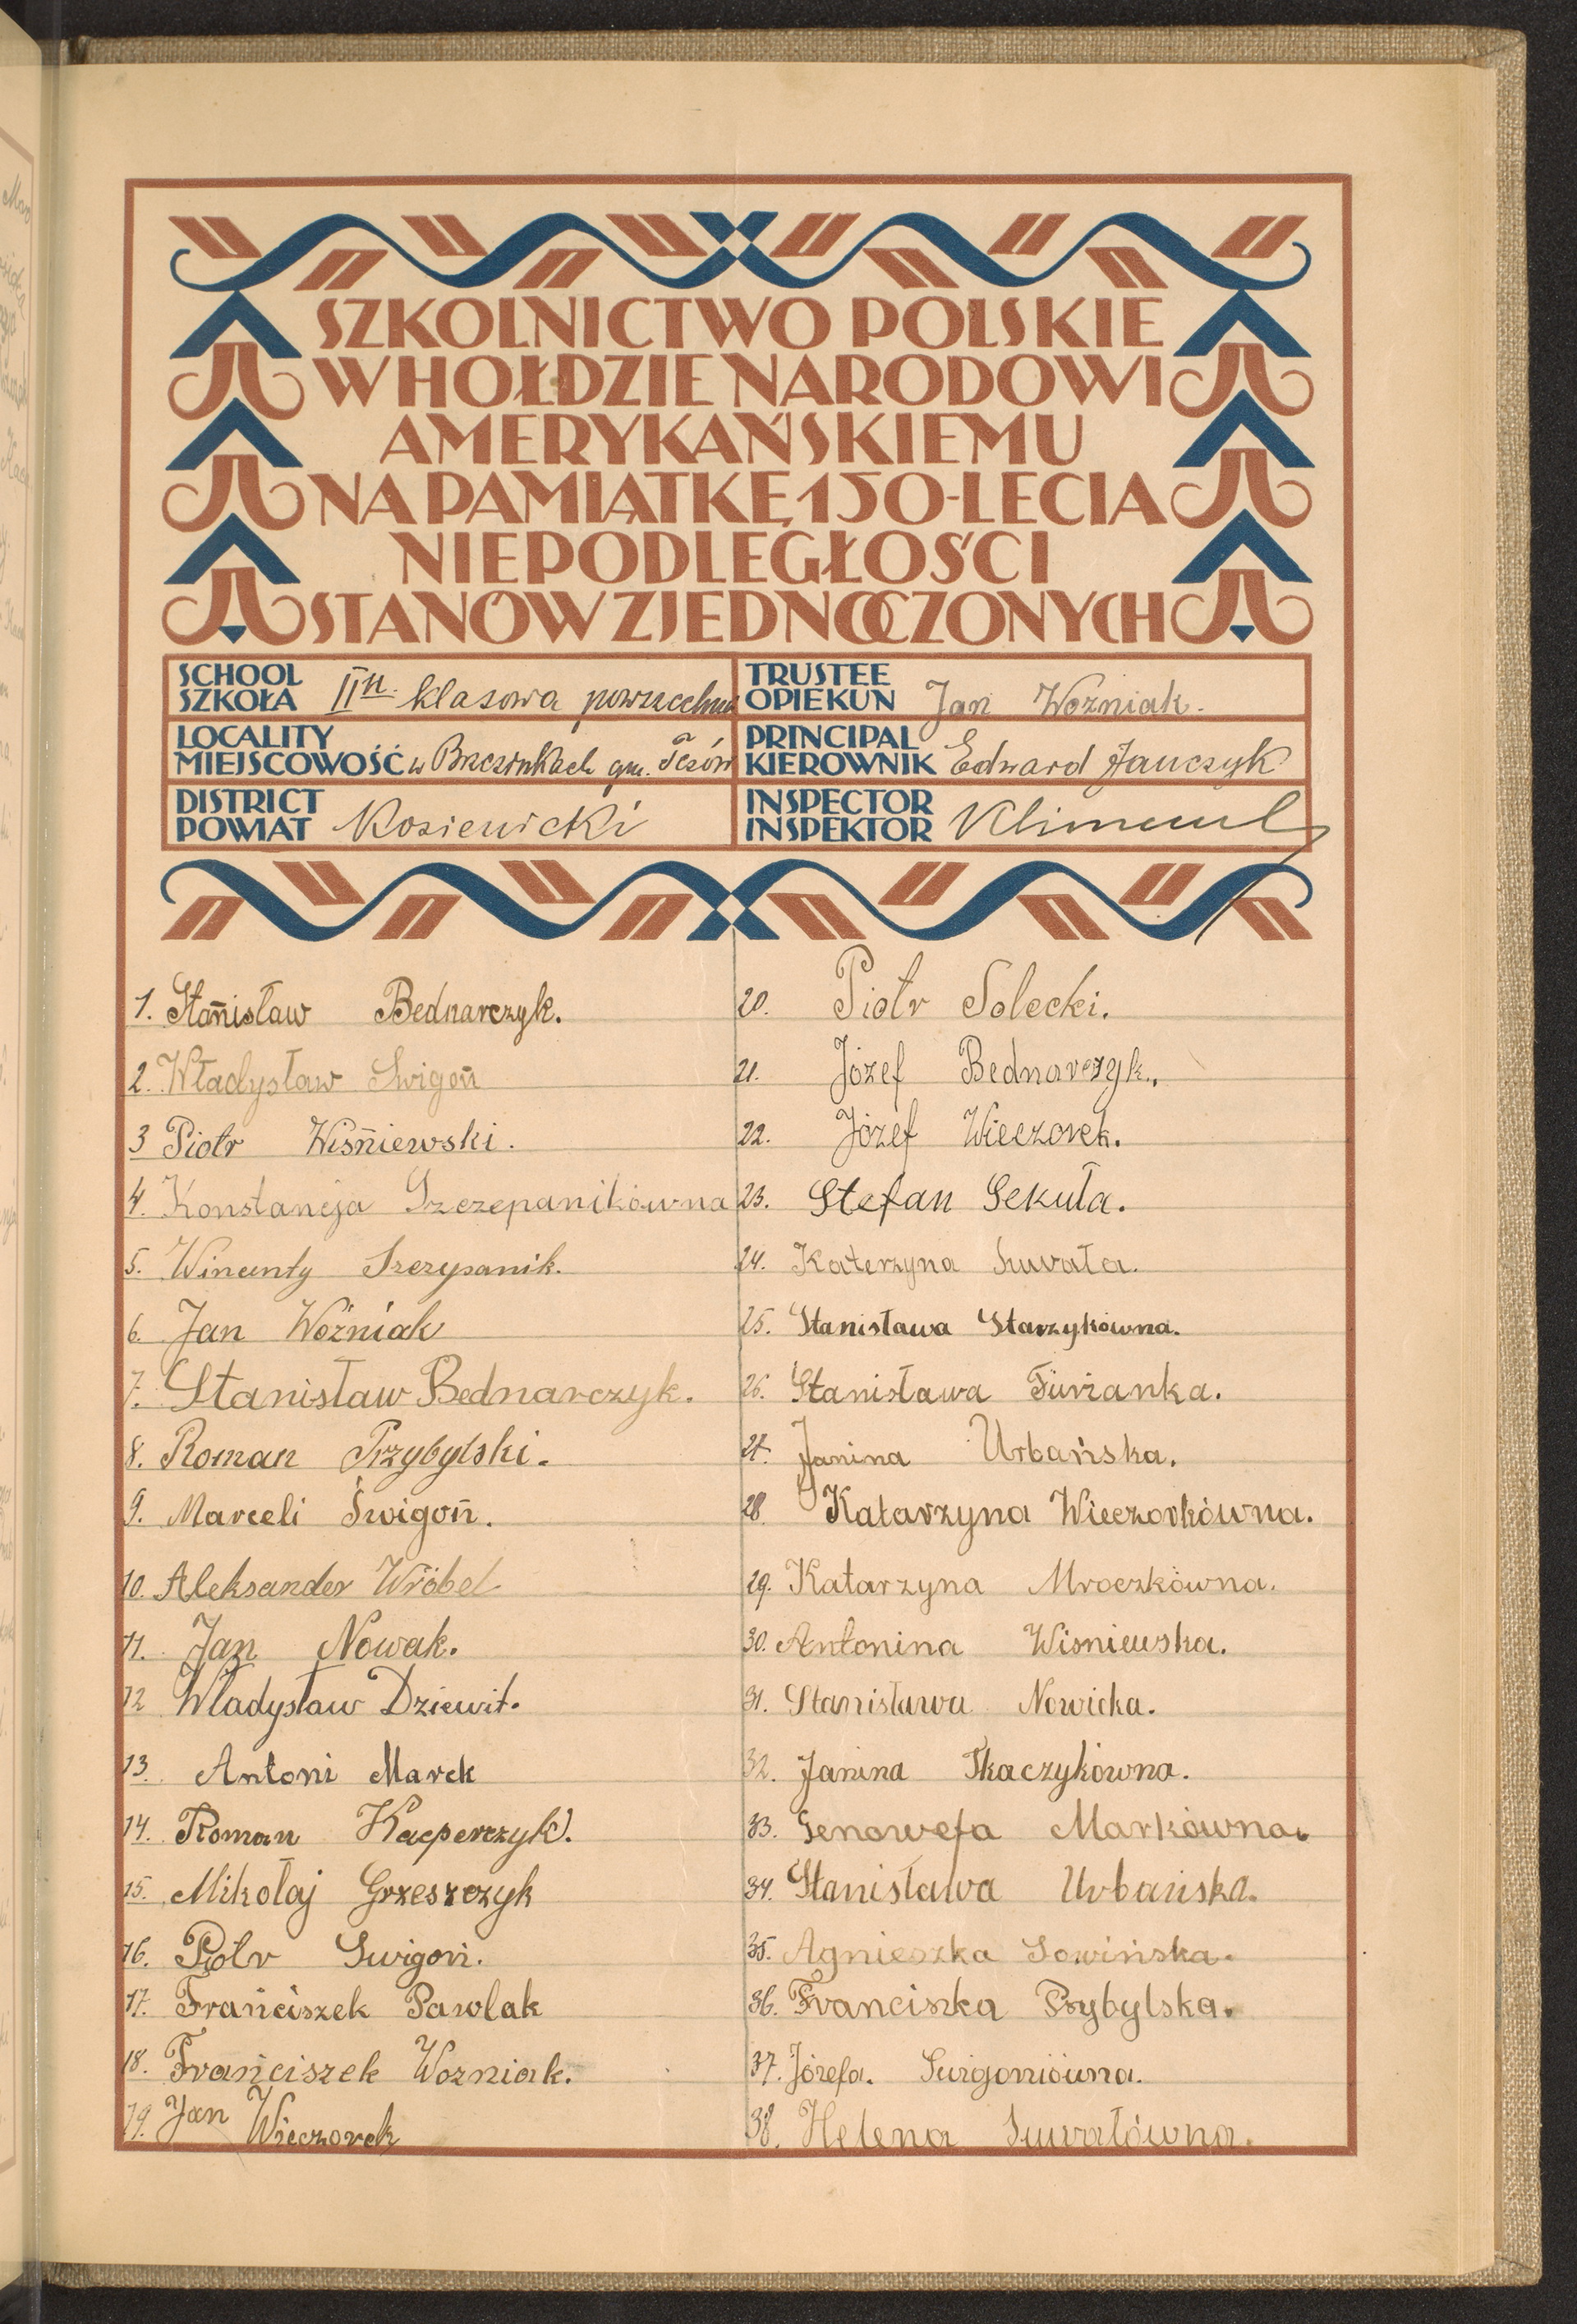 SZKOLNICTWO POLSKIE
W HOŁDZIE NARODOWI
AMERYKAŃSKIEMU
NA PAMIĄTKĘ 150-LECIA
NIEPODLEGŁOŚCI
STANÓW ZJEDNOCZONYCH
SCHOOL
SZKOŁA II kl. klasowa powszechna
LOCALITY
MIEJSCOWOŚĆ w Brzezinkach gm.
DISTRICT
POWIAT Kozienicki
TRUSTEE
OPIEKUN Jan Woźniak.
PRINCIPAL
KIEROWNIK Edward Janczyk
INSPECTOR
INSPEKTOR
1. Stanisław Bednarczyk.
2. Władysław Swigoń
3 Piotr Wiśniewski.
4. Konstancja Szczepanikówna
5. Wincenty Szczypanik.
6. Jan Woźniak
7. Stanisław Bednarczyk.
8. Roman Przybylski.
9. Marceli Świgoń.
10. Aleksander Wróbel
11. Jan Nowak.
12 Władysław Dziewit.
13. Antoni Marek
14. Roman Kacperczyk.
15. Mikołaj Grzeszczyk
16. Piotr Swigoń.
17. Franciszek Pawlak
18. Franciszek Wozniak.
19. Jan Wieczorek
20. Piotr Solecki.
21. Józef Bednarczyk.
22. Józef Wieczorek.
23. Stefan Sekuła.
24. Katerzyna Suwała.
25. Stanisława Starzykówna.
26. Stanisława Fürianka.
27. Janina Urbańska.
28. Katarzyna Wieczorkówna.
29. Katarzyna Mroczkówna.
30. Antonina Wisniewska.
31. Stanisława Nowicka.
32. Janina Tkaczykówna.
33. Genowefa Markówna.
34. Stanisława Urbańska.
35. Agnieszka Sowińska.
36. Franciszka Psybylska.
37. Józefa. Swigoniówna.
38. Helena Suwałówna.